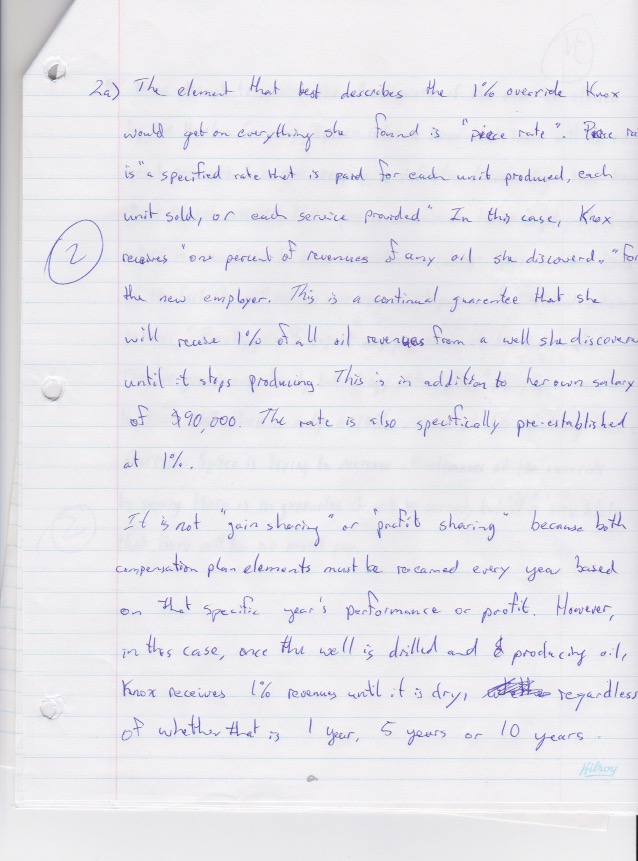 2a) The element that best describes the 1% override Knox
would get on everything she found is "piece rate". Piece ra
is "a specified rate that is paid for each unit produced, each
unit sold, or each service provided" In this case, Knox
2
receives "one percent of revenues of any oil she discoverd," for
the new employer. This is a continual guarentee that she
will receive 1% of all oil revenues from a well she discovers
until it stops producing. This is in addition to her own salary
of $90,000. The rate is also specifically pre-established
at 1%.
It is not "gain sharing" or "profit sharing" because both
compensation plan elements must be reearned every year based
on that specific year's performance or profit. However,
in this case, once the well is drilled and producing oil,
Knox receives 1% revenues until it is dry, regardless
of whether that is 1 year, 5 years or 10 years.
Hilroy